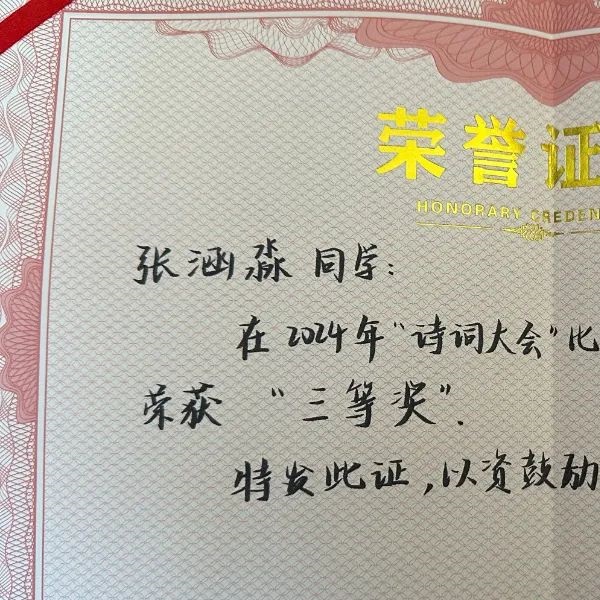 荣誉证
HONORARY CREDEN
张涵淼 同学:
在2024年“诗词大会”比
荣获 “三等奖”.
特发此证,以资鼓励